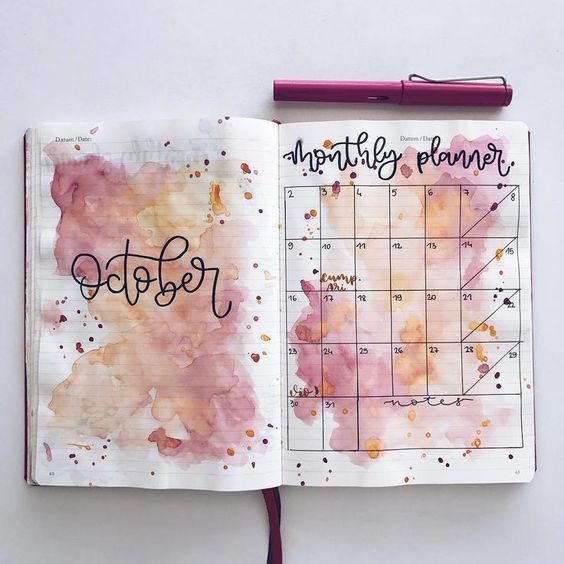 Datum / Date:
October
60
Datum / Da
monthly planner
2 3 4 5 6 7 8
9 10 11 12 13 14 15
cump.
Ari
16 17 18 19 20 21 22
23 24 25 26 27 28 29
30 31 notes